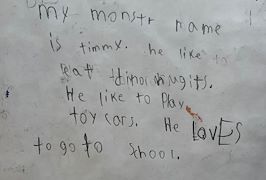 my monstr name
is timmy. he like to
eat dinor nugits.
He like to Play
toy cars. He LovES
to go to school.